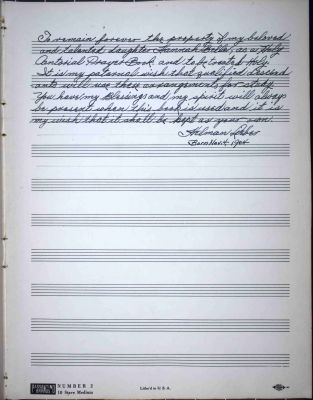 To remain forever the property of my beloved
and talented daughter Hannah Bella, as a Holy
Cantorial Prayer Book and to be treated Holy.
It is my paternal wish that qualified descend
ants will use these arrangements for study.
You have my Blessings and my spirit will always
be present when this book is used and it is
my wish that it shall be kept as your own.
Born Nov. 4, 1904
NUMBER 2
10 Stave Medium
Litho'd in U.S.A.